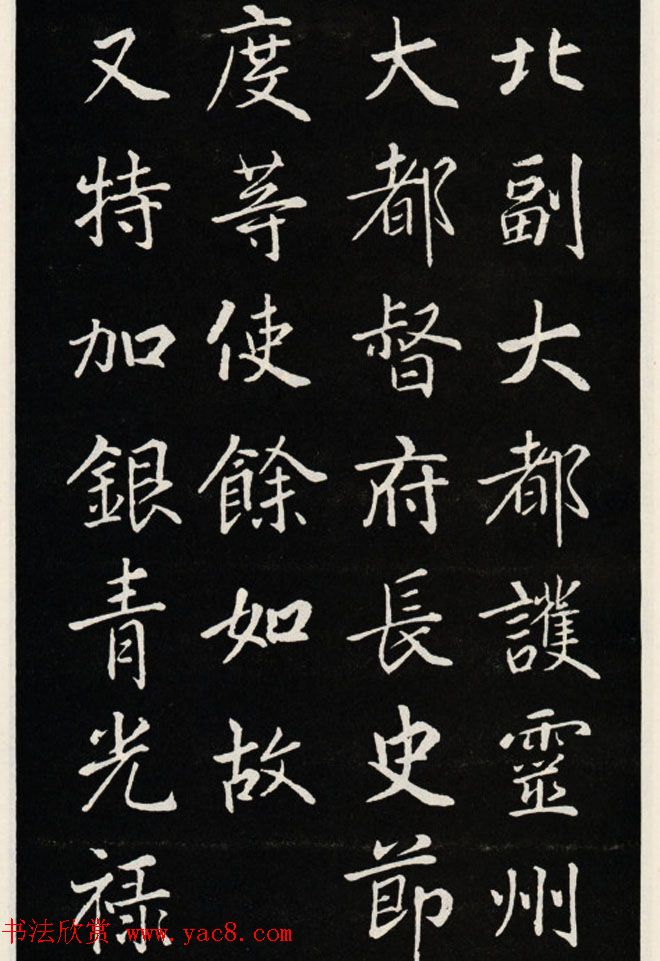 北副大都護靈州
大都督府長史節
度等使餘如故
又特加銀青光禄
书法欣赏 www.yac8.com